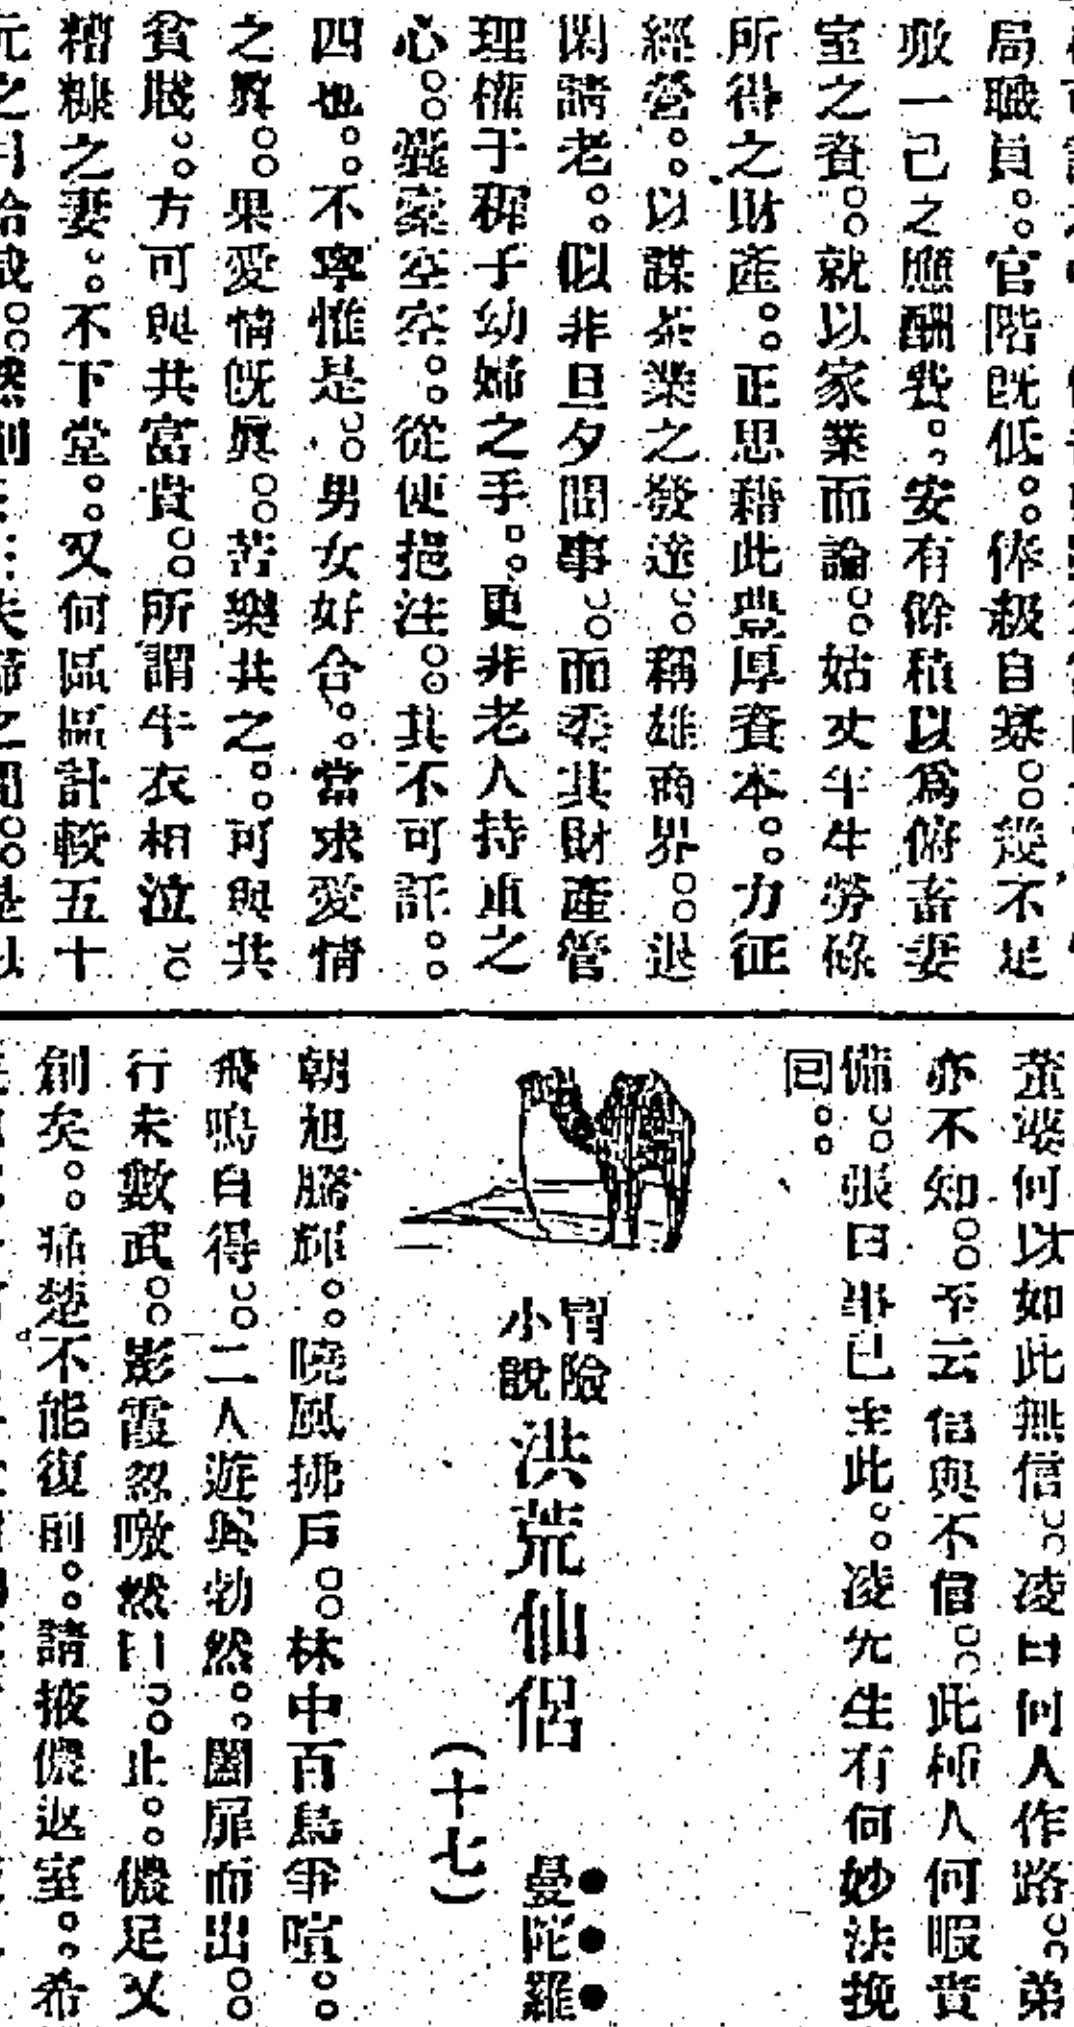 局職員。。官階既低。。俸級自寡。。幾不足
敷一己之應酬費。。安有餘積以爲俯畜妻
室之資。。就以家業而論。。姑丈半生勞碌
所得之財產。。正思藉此豐厚資本。。力征
經營。。以謀茶業之發達。。稱雄商界。。退
閑請老。。似非旦夕間事。。而委其財產管
理權于穉子幼婦之手。。更非老人持重之
心。。囊橐空空。。從使挹注。。其不可託。。
四也。。不寧惟是。。男女好合。。當求愛情
之眞。。果愛情既眞。。苦樂共之。。可與共
貧賤。。方可與共富貴。。所謂牛衣相泣。。
糟糠之妻。。不下堂。。又何區區計較五十
元之月給哉。。然則
之間。。是以
蛍婆何以如此無信。。凌曰何人作路。。弟
亦不知。。至云信與不信。。此種人何暇責
備。。張曰事已至此。。凌先生有何妙法挽
回。。
冒險
小說
洪荒仙侶
（十七）
曼陀羅
朝旭騰輝。。曉風拂戶。。林中百鳥爭喧。。
飛鳴自得。。二人遊興勃然。。闔扉而出。。
行未數武。。影霞忽噭然曰。。止。。儂足又
創矣。。痛楚不能復前。。請掖儂返室。。希